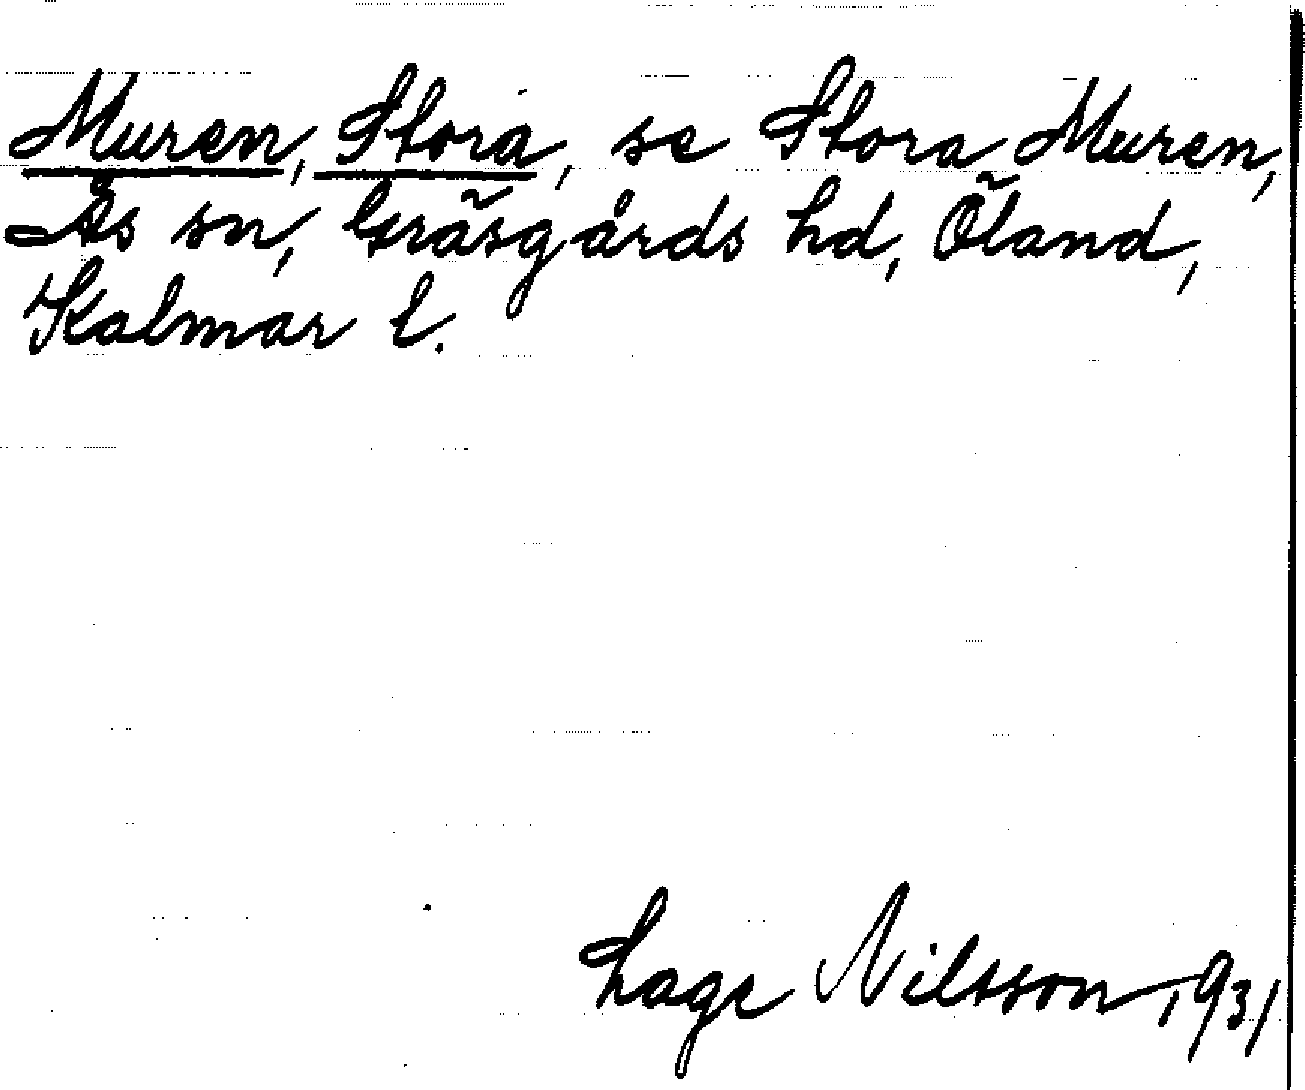 Muren, Stora, se Stora Muren,
Ås sn, Gräsgårds hd, Öland,
Kalmar l.
Lage Nilsson 1931